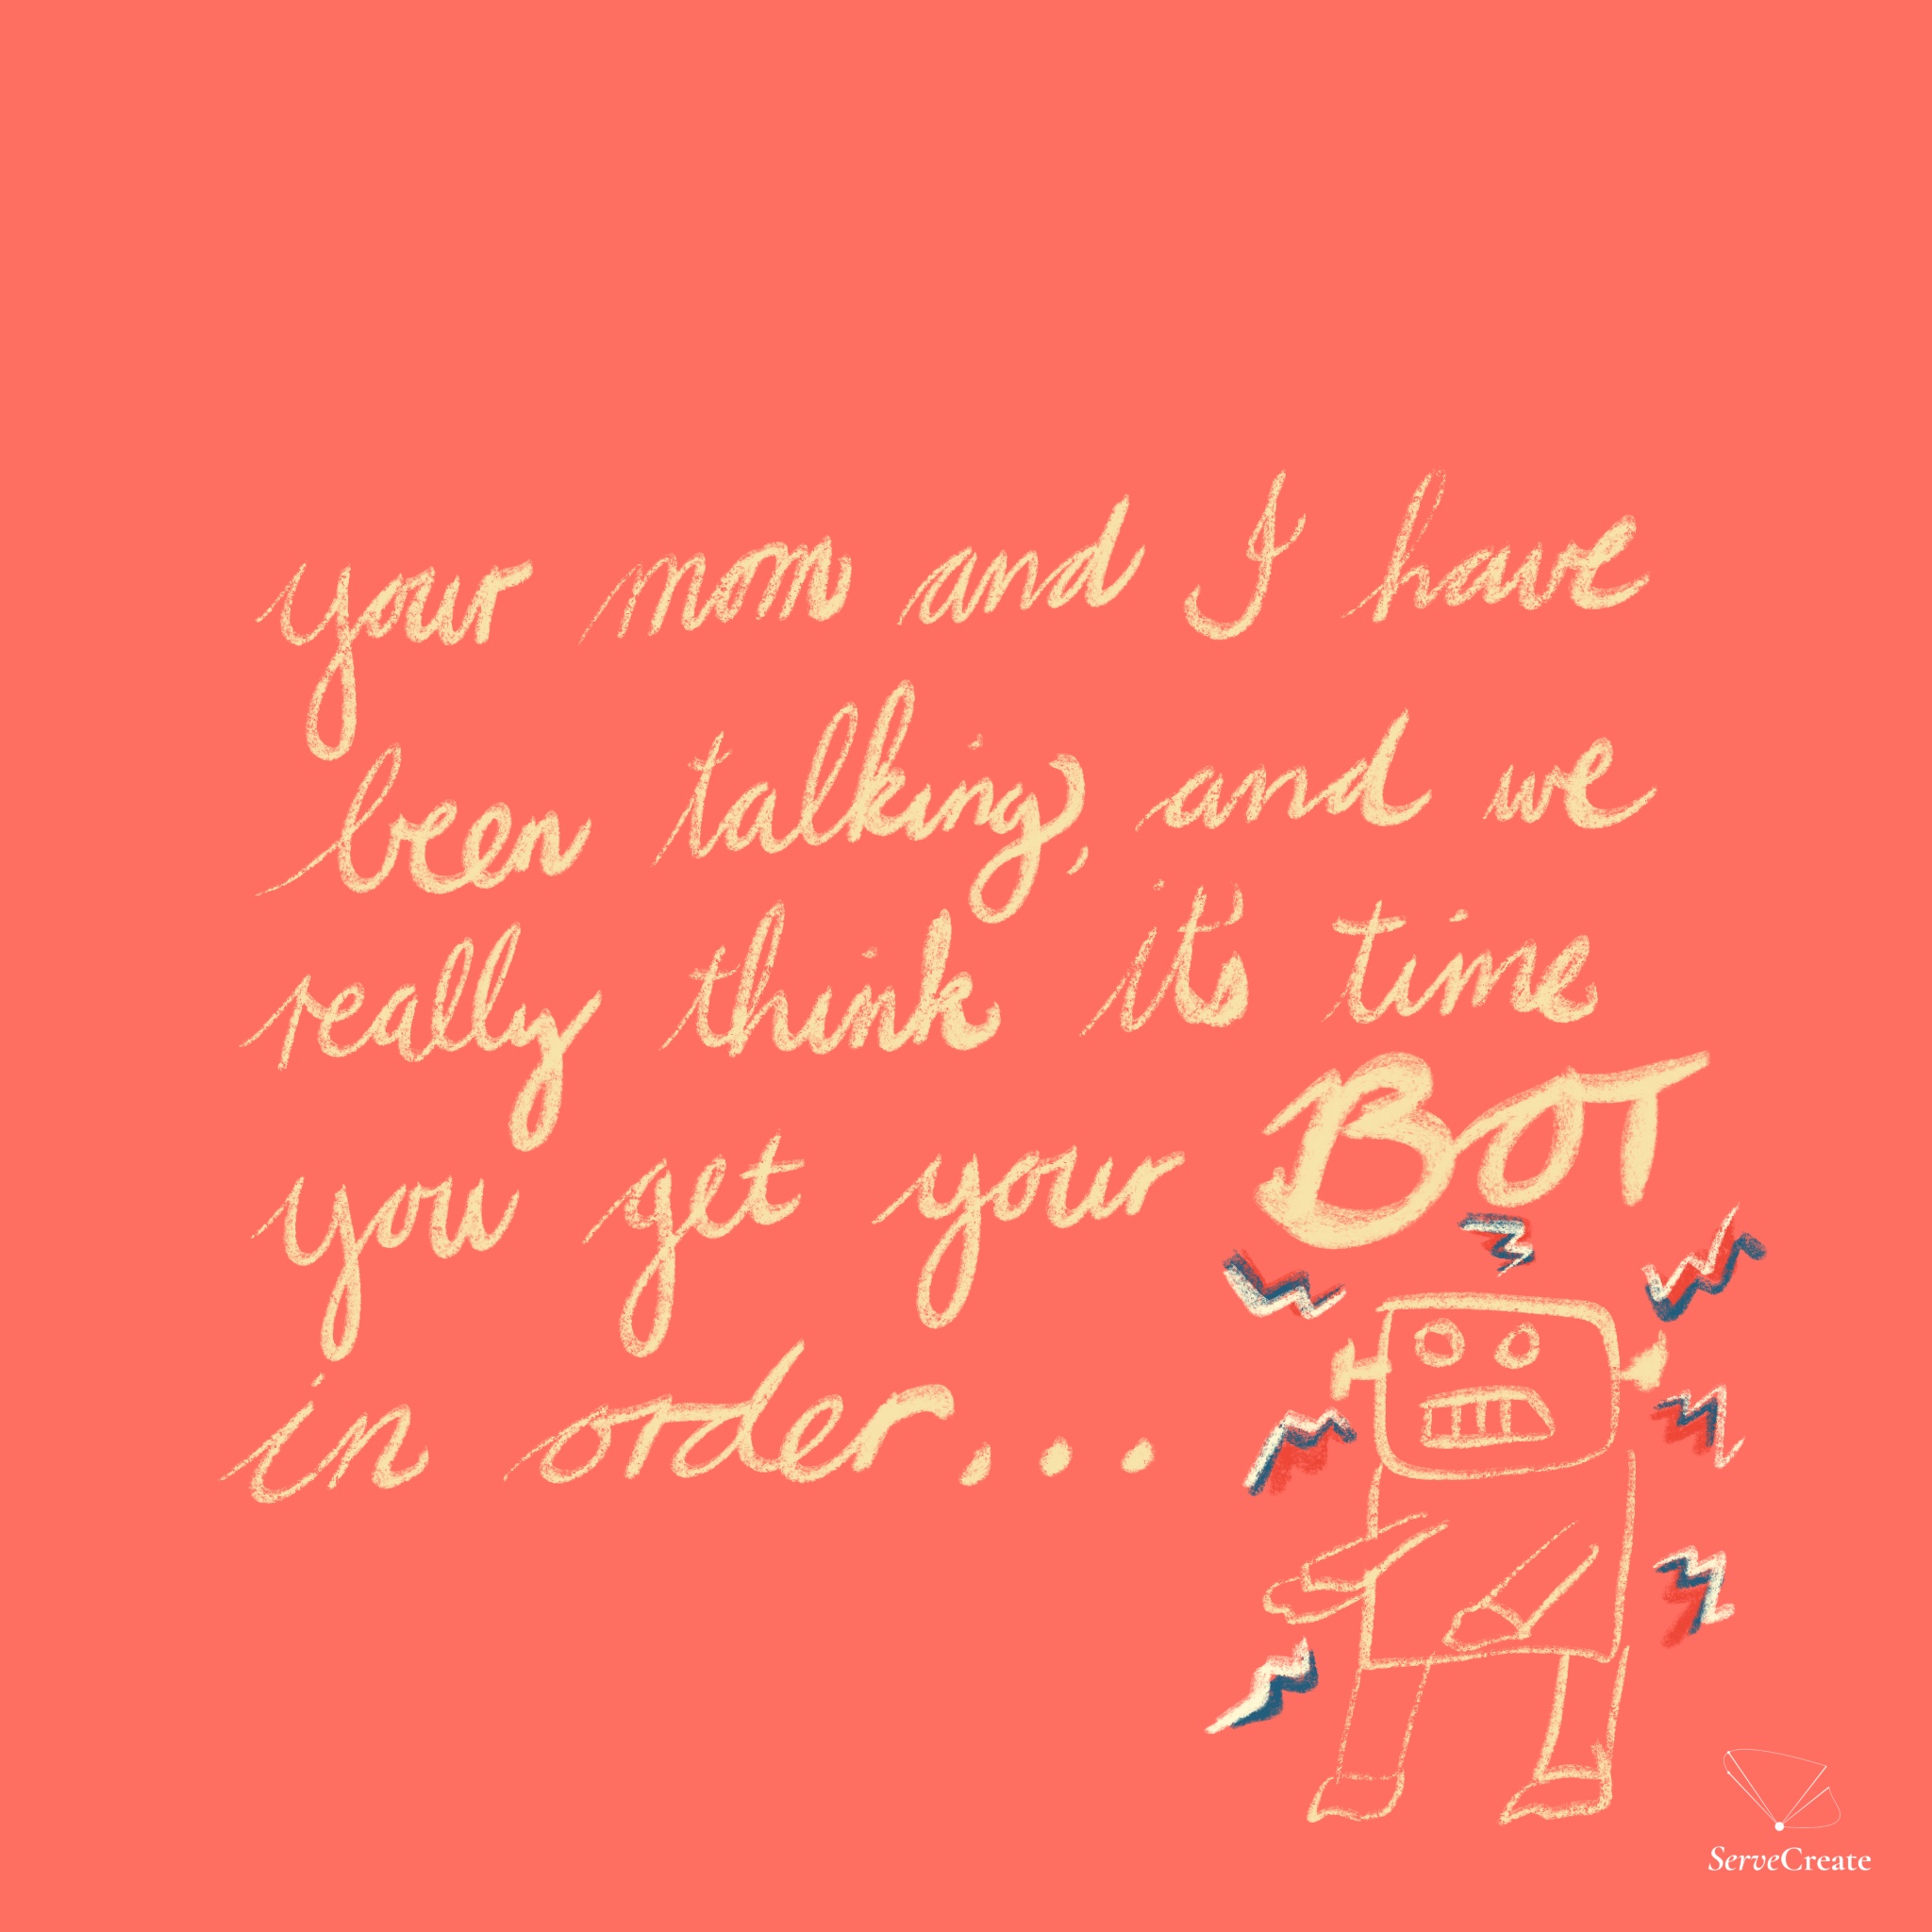 your mom and I have
been talking, and we
really think it's time
you get your BOT
in order...
ServeCreate